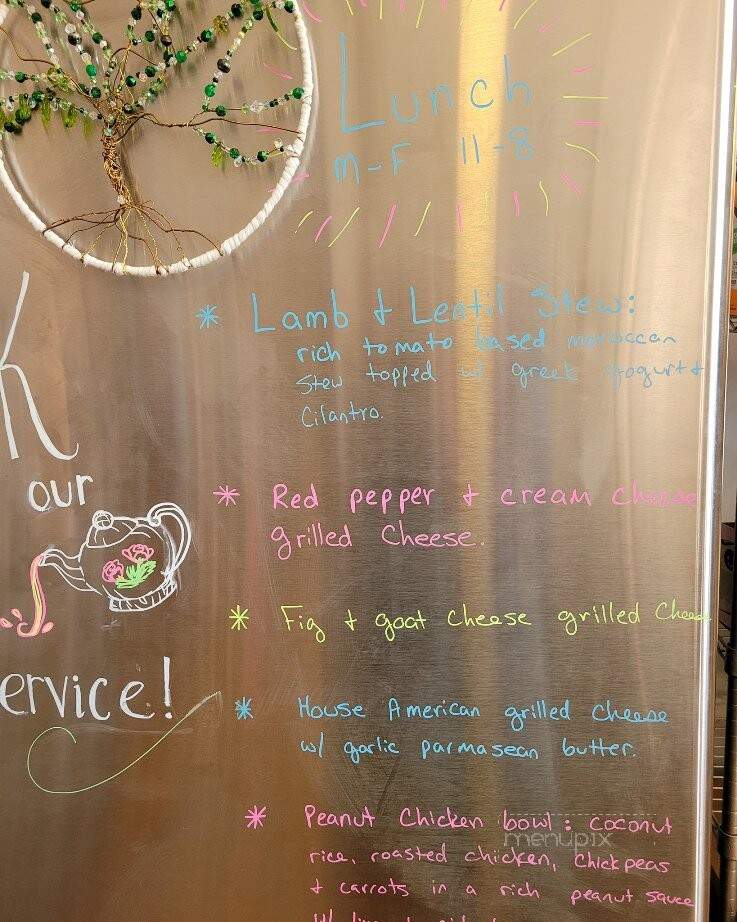 Lunch
M-F 11-8
* Lamb + Lentil Stew:
rich tomato based moroccan
Stew topped w/ greek yogurt +
Cilantro.
K
our
* Red pepper + cream cheese
grilled Cheese.
* Fig + goat cheese grilled Chees
ervice!
* House American grilled cheese
w/ garlic parmasean butter.
* Peanut Chicken bowl: coconut
menupix
rice, roasted chicken, chickpeas
+ carrots in a rich peanut sauce